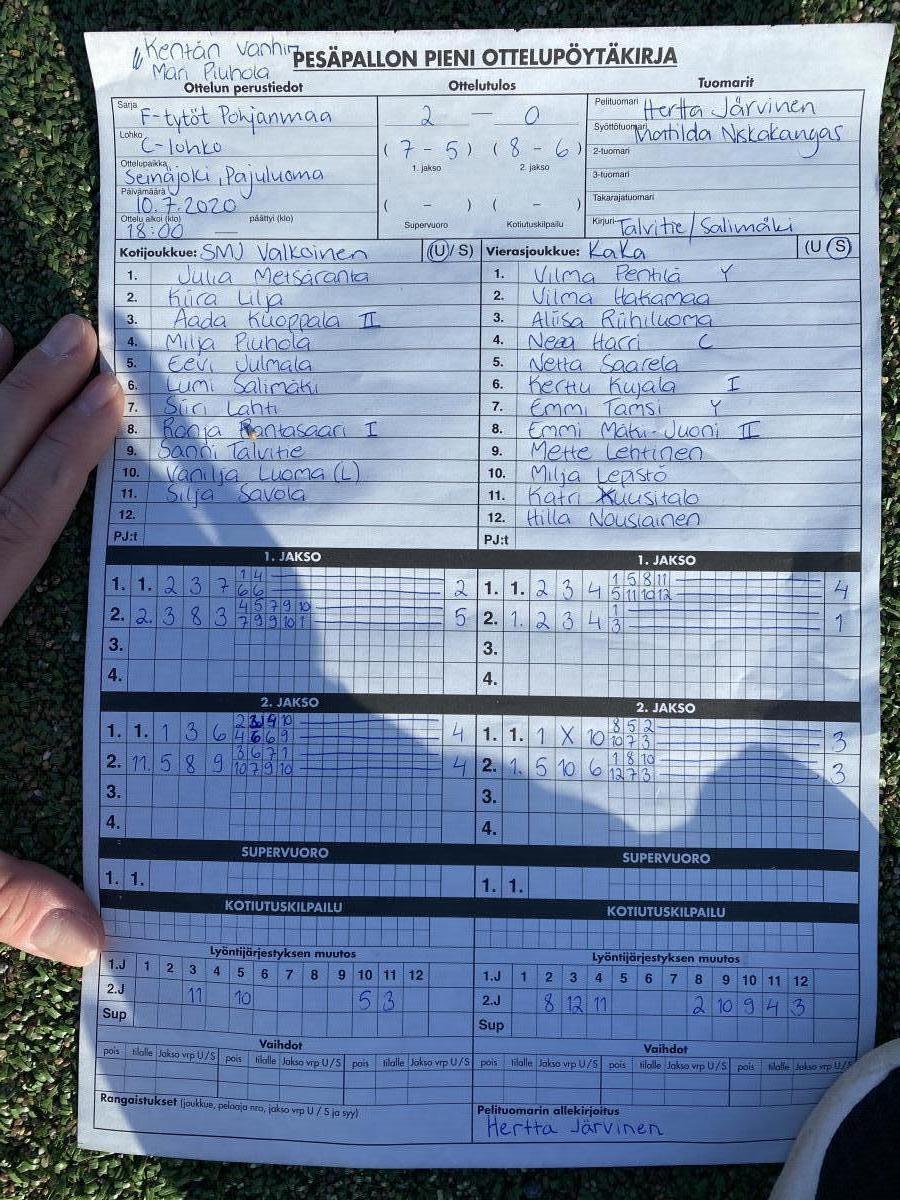 Kentän vanhin
Mari Piuhola
PESÄPALLON PIENI OTTELUPÖYTÄKIRJA
Ottelun perustiedot
Sarja F-tytöt Pohjanmaa
Lohko C-lohko
Ottelupaikka Seinäjoki, Pajuluoma
Päivämäärä 10.7.2020
Ottelu alkoi (klo) päättyi (klo)
18:00
Ottelutulos
2 — 0
( 7 - 5 ) ( 8 - 6 )
1. jakso 2. jakso
( - ) ( - )
Supervuoro Kotiutuskilpailu
Tuomarit
Pelituomari Hertta Järvinen
Syöttötuomari Matilda Niskakangas
2-tuomari
3-tuomari
Takarajatuomari
Kirjuri Talvitie/Salimäki
Kotijoukkue: SMJ Valkoinen (U/S)
1. Julia Metsäranta
2. Kiira Lilja
3. Aada Kuoppala II
4. Milja Piuhola
5. Eevi Julmala
6. Lumi Salimäki
7. Siiri Lahti
8. Ronja Rantasaari I
9. Sanni Talvitie
10. Vanilja Luoma (L)
11. Silja Savola
12.
PJ:t
Vierasjoukkue: Kaka (U S)
1. Vilma Pentilä Y
2. Vilma Hakamaa
3. Aliisa Riihiluoma
4. Neea Harri C
5. Netta Saarela
6. Kerttu Kujala I
7. Emmi Tamsi Y
8. Emmi Mäki-Juoni II
9. Mette Lehtinen
10. Milja Lepistö
11. Katri Kuusitalo
12. Hilla Nousiainen
PJ:t
1. JAKSO
1. 1. 2 3 7 1 4 2
6 6
2. 2. 3 8 3 4 5 7 9 10 5
7 9 9 10 1
3.
4.
1. JAKSO
1. 1. 2 3 4 1 5 8 11 4
5 11 10 12
2. 1. 2 3 4 1 1
3
3.
4.
2. JAKSO
1. 1. 1 3 6 2 3 9 10 4
4 6 6 9
2. 11. 5 8 9 3 6 7 1 4
10 7 9 10
3.
4.
2. JAKSO
1. 1. 1 X 10 8 5 2 3
10 7 3
2. 1. 5 10 6 1 8 10 3
12 7 3
3.
4.
SUPERVUORO
1. 1.
SUPERVUORO
1. 1.
KOTIUTUSKILPAILU
KOTIUTUSKILPAILU
Lyöntijärjestyksen muutos
1.J 1 2 3 4 5 6 7 8 9 10 11 12
2.J 11 10 5 3
Sup
Lyöntijärjestyksen muutos
1.J 1 2 3 4 5 6 7 8 9 10 11 12
2.J 8 12 11 2 10 9 4 3
Sup
Vaihdot
pois tilalle Jakso vrp U/S pois tilalle Jakso vrp U/S pois tilalle Jakso vrp U/S
Vaihdot
pois tilalle Jakso vrp U/S pois tilalle Jakso vrp U/S pois tilalle Jakso vrp U/S
Rangaistukset (joukkue, pelaaja nro, jakso vrp U / S ja syy)
Pelituomarin allekirjoitus
Hertta Järvinen